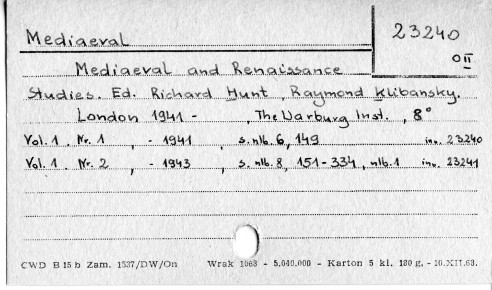 Mediaeval
23240
OII
Mediaeval and Renaissance
Studies. Ed. Richard Hunt, Raymond Klibansky.
London 1941 - , The Warburg Inst., 8°
Vol. 1. Nr. 1, - 1941 s. nlb. 6, 149 inv. 23240
Vol. 1. Nr. 2, - 1943 s. nlb. 8, 151-334, nlb. 1 inv. 23241
CWD B 15 b Zam. 1537/DW/On Wrak 1063 - 5.040.000 - Karton 5 kl. 180 g. - 10.XII.63.